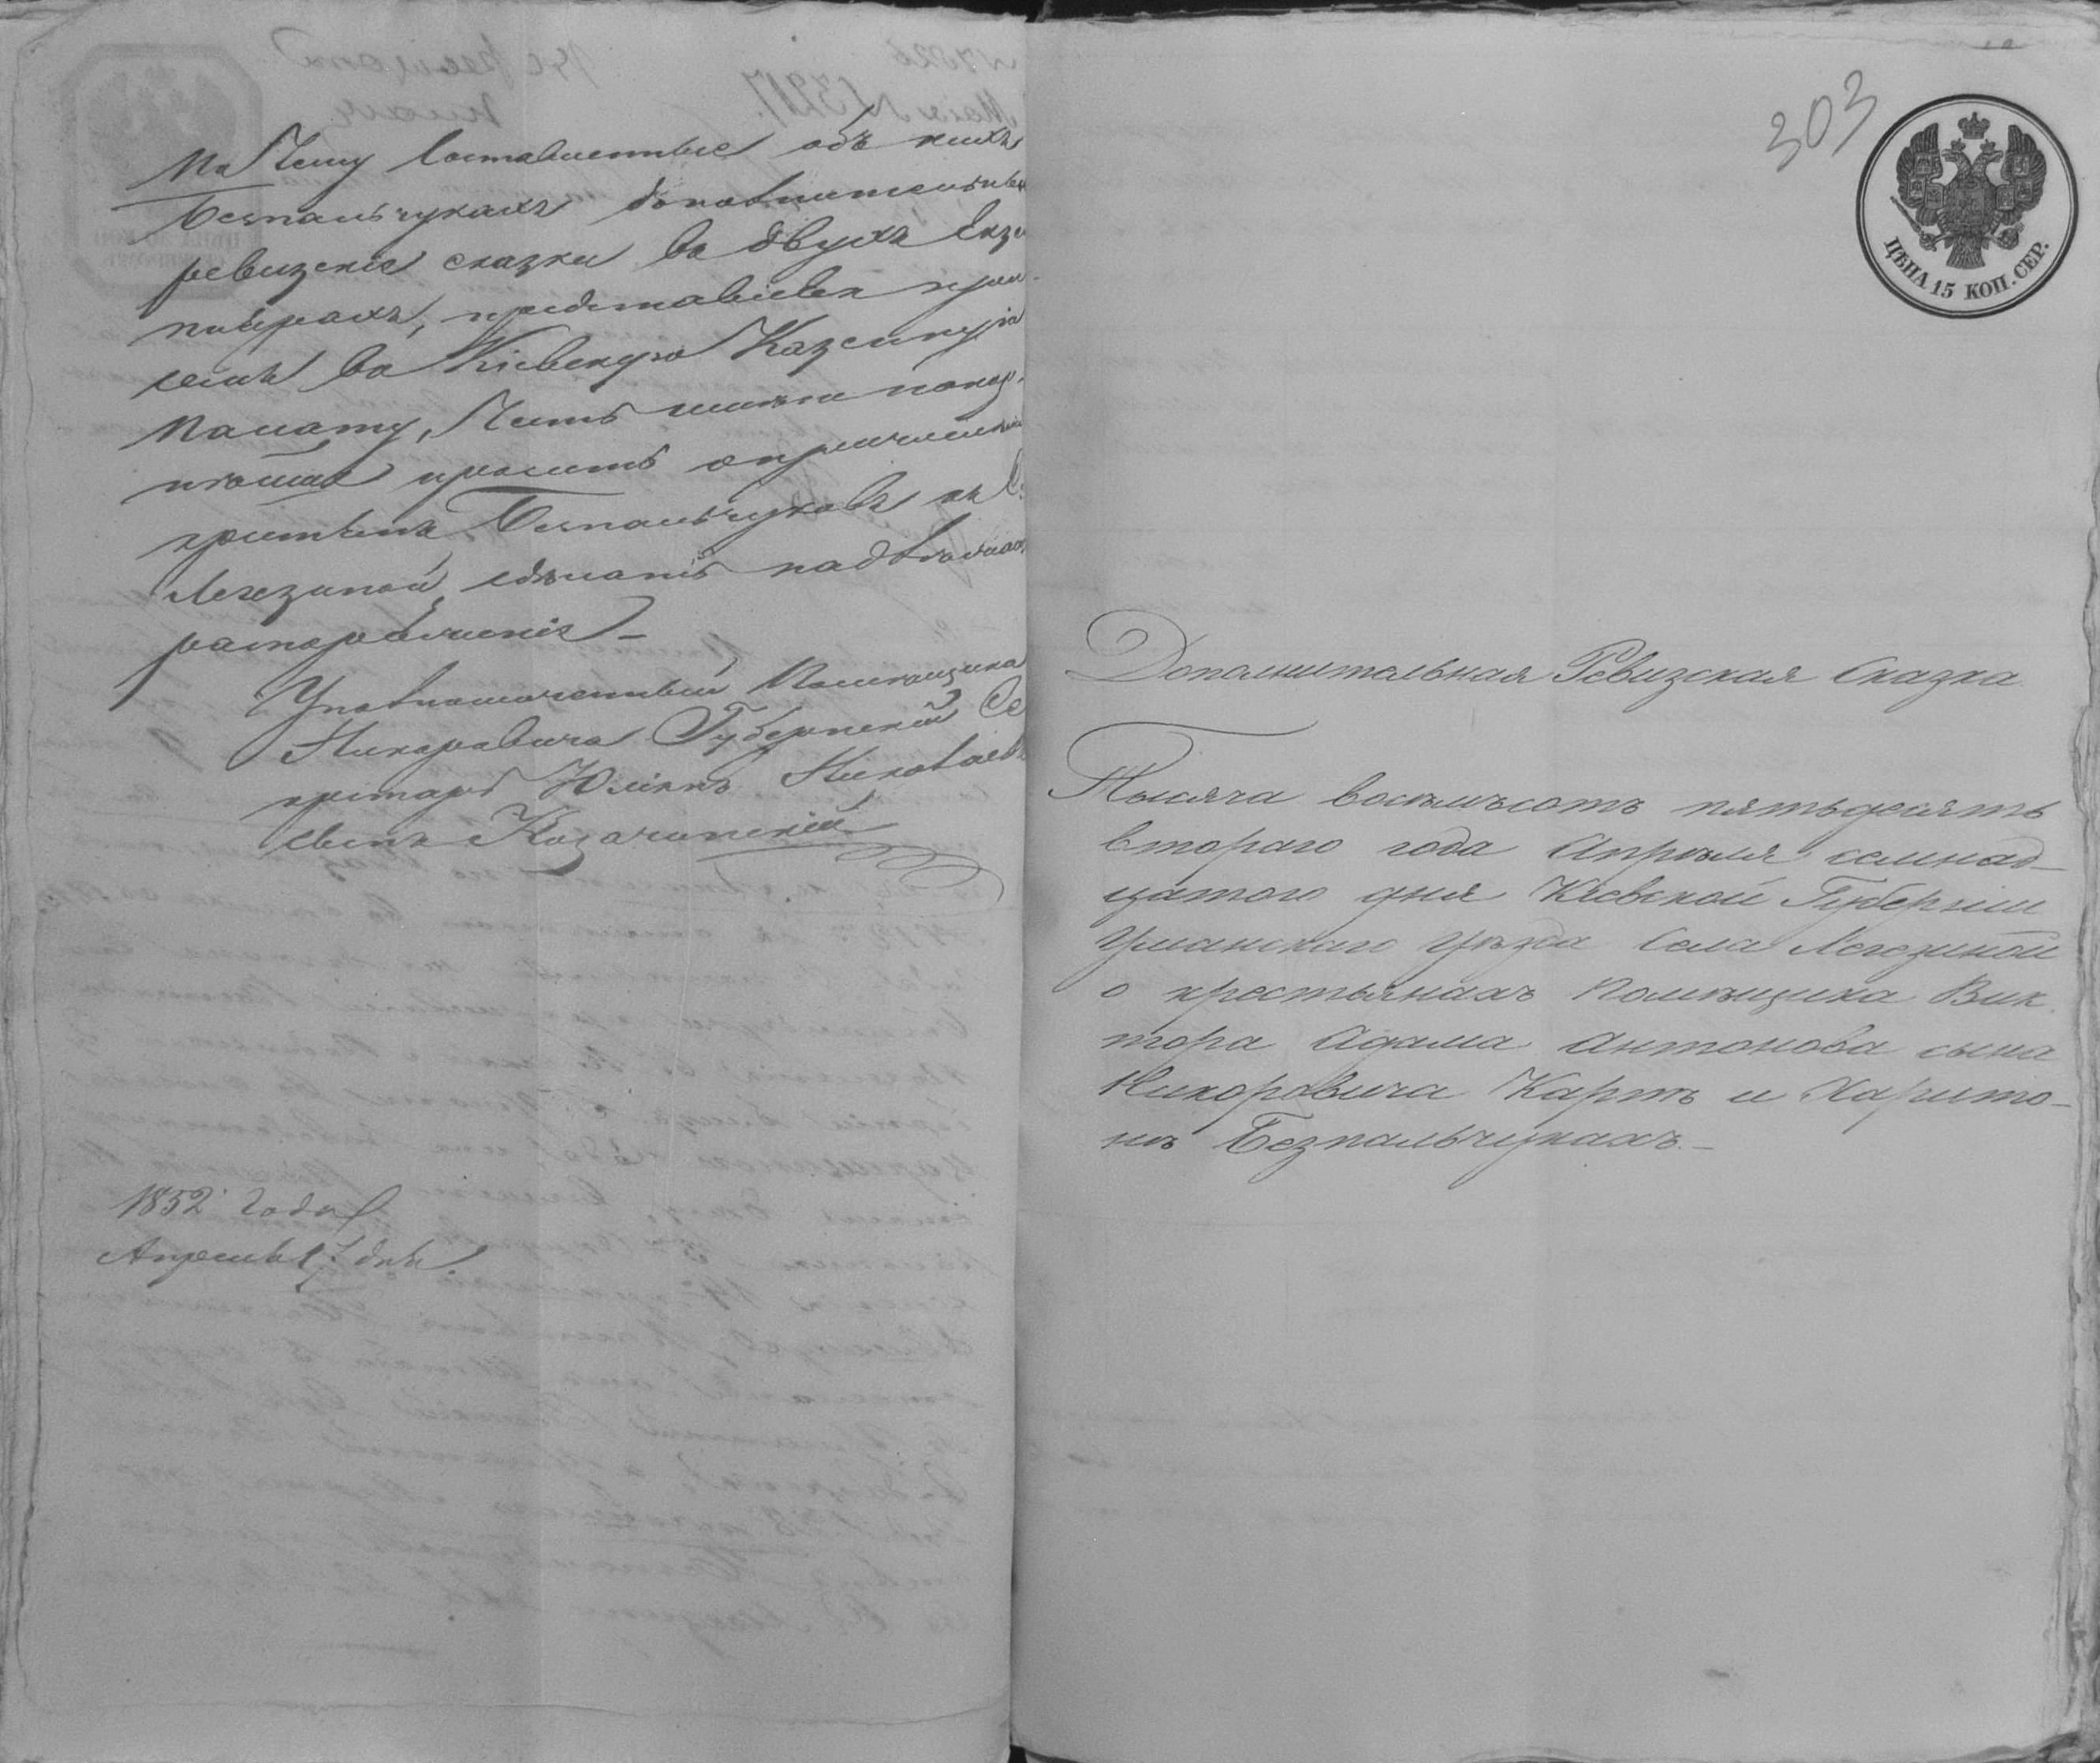 по чему составленные объ нихъ
Безпальчукахъ дополнительныя
ревизскія сказки въ двухъ Екзе
плярахъ, представляя при
семъ въ Кіевскую Казенную
Палату, Честь имѣю покор-
нѣйше просить о причисленіи
крестьянъ Безпальчуковъ къ С.
Легезиной, сдѣлать надлежащее
распоряженіе
Уполномоченный Помѣщика
Никоровича Губернскій Се
кретарь Юліянъ Николаевъ
сынъ Козачинскій
1852 года
Апрѣля 17 дня.
303
ЦѢНА 15 КОП. СЕР.
Дополнительная Ревизская Сказка
Тысяча восемьсотъ пятьдесятъ
втораго года Апрѣля семнад-
цатого дня Кіевской Губерніи
Уманскаго уѣзда Села Легезиной
о крестьянахъ Помѣщика Вик
тора Адама Антонова сына
Никоровича Карпѣ и Харито-
нѣ Безпальчукахъ.